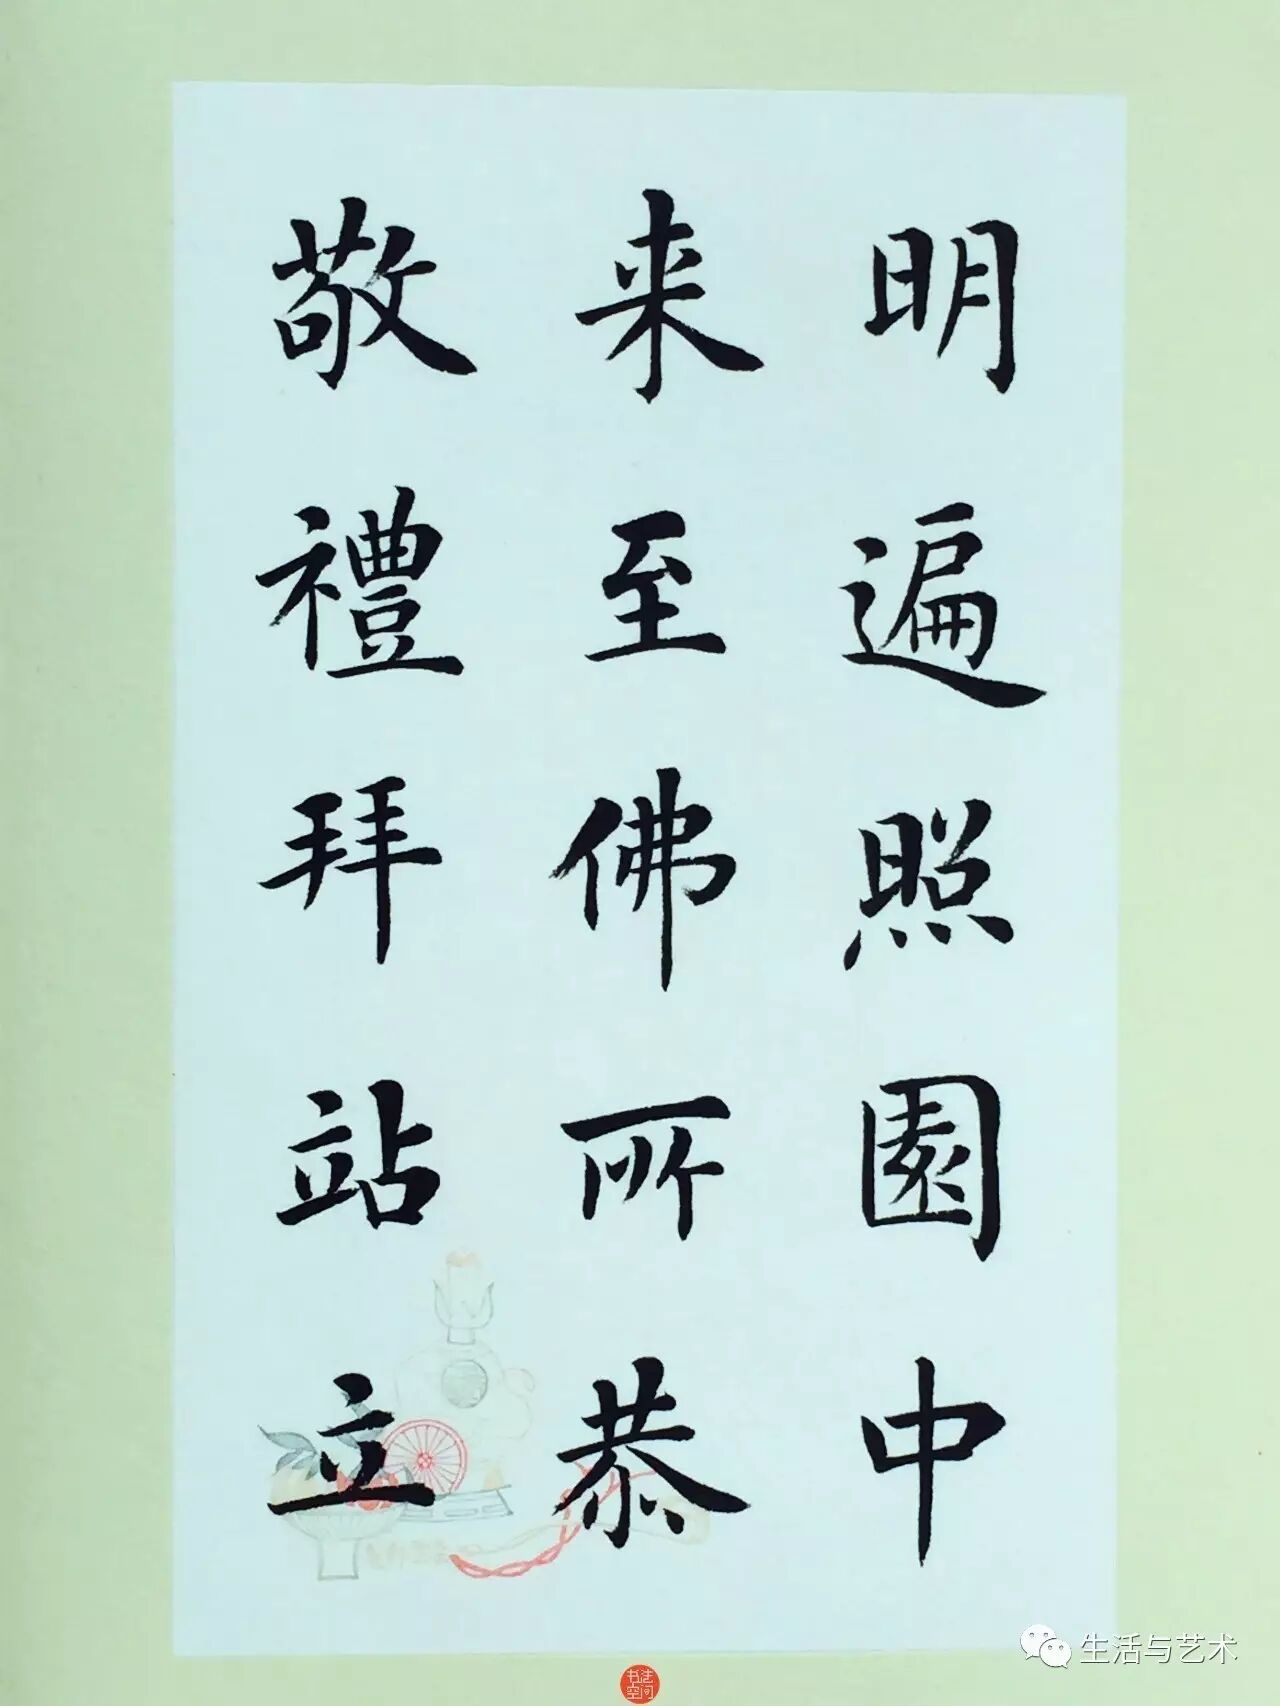 明遍照園中
来至佛所恭
敬禮拜站立
生活与艺术
书法空间